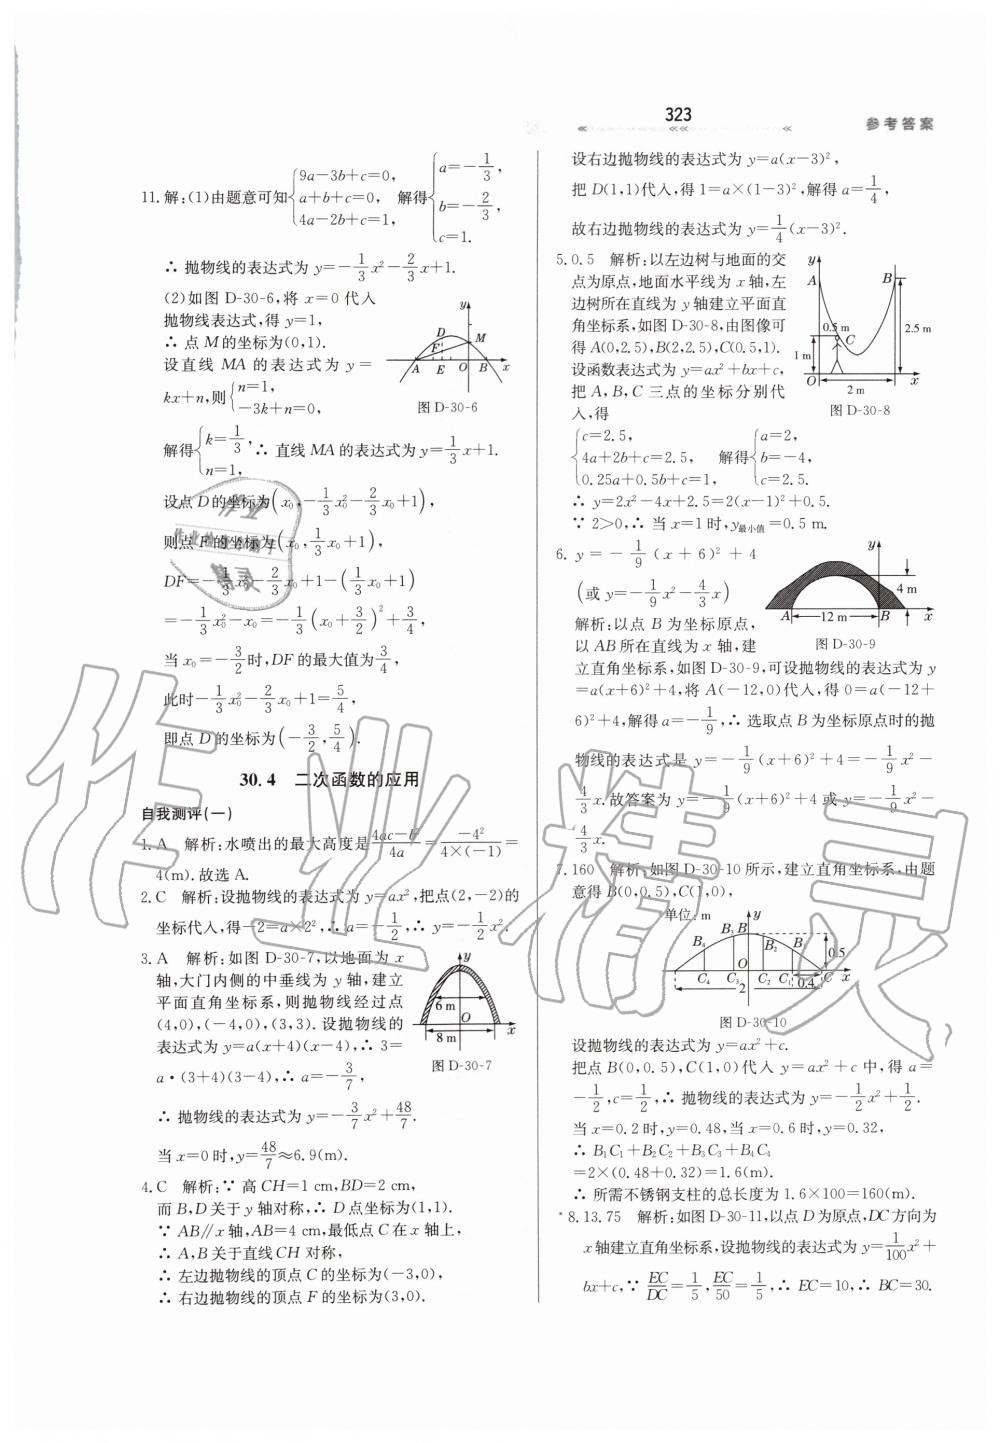 323
参考答案
11.解:(1)由题意可知{9a-3b+c=0, a+b+c=0, 4a-2b+c=1, 解得{a=-1/3, b=-2/3, c=1.
∴ 抛物线的表达式为 y=-1/3x²-2/3x+1.
(2)如图 D-30-6,将 x=0 代入
抛物线表达式,得 y=1,
∴ 点 M 的坐标为(0,1).
设直线 MA 的表达式为 y=
kx+n,则{n=1, -3k+n=0,
y
D
M
F
A E O B x
图 D-30-6
解得{k=1/3, n=1, ∴ 直线 MA 的表达式为 y=1/3x+1.
设点 D 的坐标为(x₀,-1/3x₀²-2/3x₀+1),
则点 F 的坐标为(x₀,1/3x₀+1),
DF=-1/3x₀²-2/3x₀+1-(1/3x₀+1)
=-1/3x₀²-x₀=-1/3(x₀+3/2)²+3/4,
当 x₀=-3/2时,DF 的最大值为3/4,
此时-1/3x₀²-2/3x₀+1=5/4,
即点 D 的坐标为(-3/2,5/4).
30.4 二次函数的应用
自我测评(一)
1.A 解析:水喷出的最大高度是(4ac-b²)/4a=-4²/(4×(-1))=
4(m).故选 A.
2.C 解析:设抛物线的表达式为 y=ax²,把点(2,-2)的
坐标代入,得-2=a×2²,∴ a=-1/2,∴ y=-1/2x².
3.A 解析:如图 D-30-7,以地面为 x
轴,大门内侧的中垂线为 y 轴,建立
平面直角坐标系,则抛物线经过点
(4,0),(-4,0),(3,3).设抛物线的
表达式为 y=a(x+4)(x-4),∴ 3=
a·(3+4)(3-4),∴ a=-3/7,
y
6 m
O
x
8 m
图 D-30-7
∴ 抛物线的表达式为 y=-3/7x²+48/7.
当 x=0 时,y=48/7≈6.9(m).
4.C 解析:∵ 高 CH=1 cm,BD=2 cm,
而 B,D 关于 y 轴对称,∴ D 点坐标为(1,1).
∵ AB∥x 轴,AB=4 cm,最低点 C 在 x 轴上,
∴ A,B 关于直线 CH 对称,
∴ 左边抛物线的顶点 C 的坐标为(-3,0),
∴ 右边抛物线的顶点 F 的坐标为(3,0).
设右边抛物线的表达式为 y=a(x-3)²,
把 D(1,1)代入,得 1=a×(1-3)²,解得 a=1/4,
故右边抛物线的表达式为 y=1/4(x-3)².
5.0.5 解析:以左边树与地面的交
点为原点,地面水平线为 x 轴,左
边树所在直线为 y 轴建立平面直
角坐标系,如图 D-30-8,由图像可
得 A(0,2.5),B(2,2.5),C(0.5,1).
设函数表达式为 y=ax²+bx+c,
把 A,B,C 三点的坐标分别代
入,得
y
A
B
0.5 m
C
2.5 m
1 m
O
2 m
x
图 D-30-8
{c=2.5, 4a+2b+c=2.5, 0.25a+0.5b+c=1, 解得{a=2, b=-4, c=2.5.
∴ y=2x²-4x+2.5=2(x-1)²+0.5.
∵ 2>0,∴ 当 x=1 时,y最小值=0.5 m.
6. y=-1/9(x+6)²+4
(或 y=-1/9x²-4/3x)
解析:以点 B 为坐标原点,
以 AB 所在直线为 x 轴,建
立直角坐标系,如图 D-30-9,可设抛物线的表达式为 y
=a(x+6)²+4,将 A(-12,0)代入,得 0=a(-12+
6)²+4,解得 a=-1/9,∴ 选取点 B 为坐标原点时的抛
物线的表达式是 y=-1/9(x+6)²+4=-1/9x²-
4/3x.故答案为 y=-1/9(x+6)²+4 或 y=-1/9x²-
4/3x.
y
4 m
A
12 m
B
x
图 D-30-9
7.160 解析:如图 D-30-10 所示,建立直角坐标系,由题
意得 B(0,0.5),C(1,0),
单位: m
y
B₄ B₃ B B₂ B
0.5
C₄ C₃ O C₂ C₁ C x
0.4
2
图 D-30-10
设抛物线的表达式为 y=ax²+c.
把点 B(0,0.5),C(1,0)代入 y=ax²+c 中,得 a=
-1/2,c=1/2,∴ 抛物线的表达式为 y=-1/2x²+1/2.
当 x=0.2 时,y=0.48,当 x=0.6 时,y=0.32,
∴ B₁C₁+B₂C₂+B₃C₃+B₄C₄
=2×(0.48+0.32)=1.6(m).
∴ 所需不锈钢支柱的总长度为 1.6×100=160(m).
*8.13.75 解析:如图 D-30-11,以点 D 为原点,DC 方向为
x 轴建立直角坐标系,设抛物线的表达式为 y=1/100x²+
bx+c,∵ EC/DC=1/5,EC/50=1/5,∴ EC=10,∴ BC=30.
作业精灵